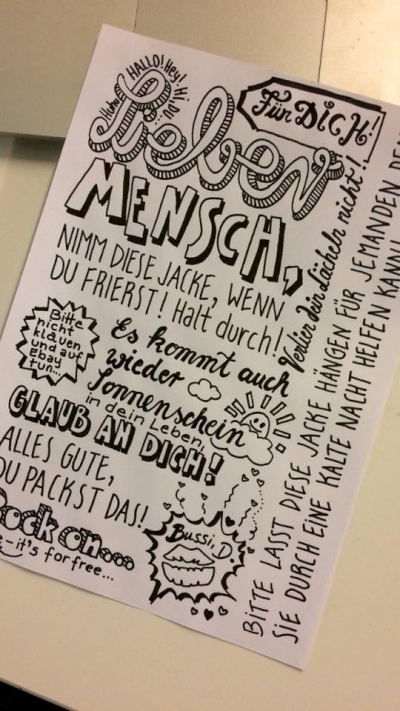 HALLO! Hey! Hi, Du...
Für DICH!
Lieber
MENSCH,
NIMM DIESE JACKE, WENN
DU FRIERST! Halt durch!
Verlier dein Lächeln nicht!
Bitte
nicht
klauen
und auf
Ebay
tun...
Es kommt auch
wieder
Sonnenschein
in dein Leben,
GLAUB AN DICH!
ALLES GUTE,
DU PACKST DAS!
Rock on....
- it's for free...
Bussi, D.
BITTE LASST DIESE JACKE HÄNGEN FÜR JEMANDEN
SIE DURCH EINE KALTE NACHT HELFEN KANN!